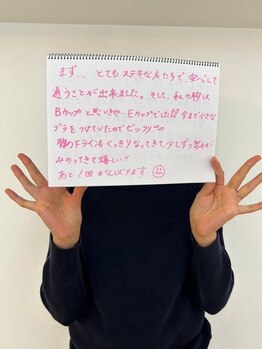 まず... とてもステキな方たちで、安心して
通うことが出来ました。そして、私の胸は
Bカップと思いきや…Eカップでした!! 今まで小さな
ブラをつけていたのでビックリ
胸の下ラインもくっきりなってきて、少しずつ努力が
みのってきて嬉しい!!
あと1回がんばります